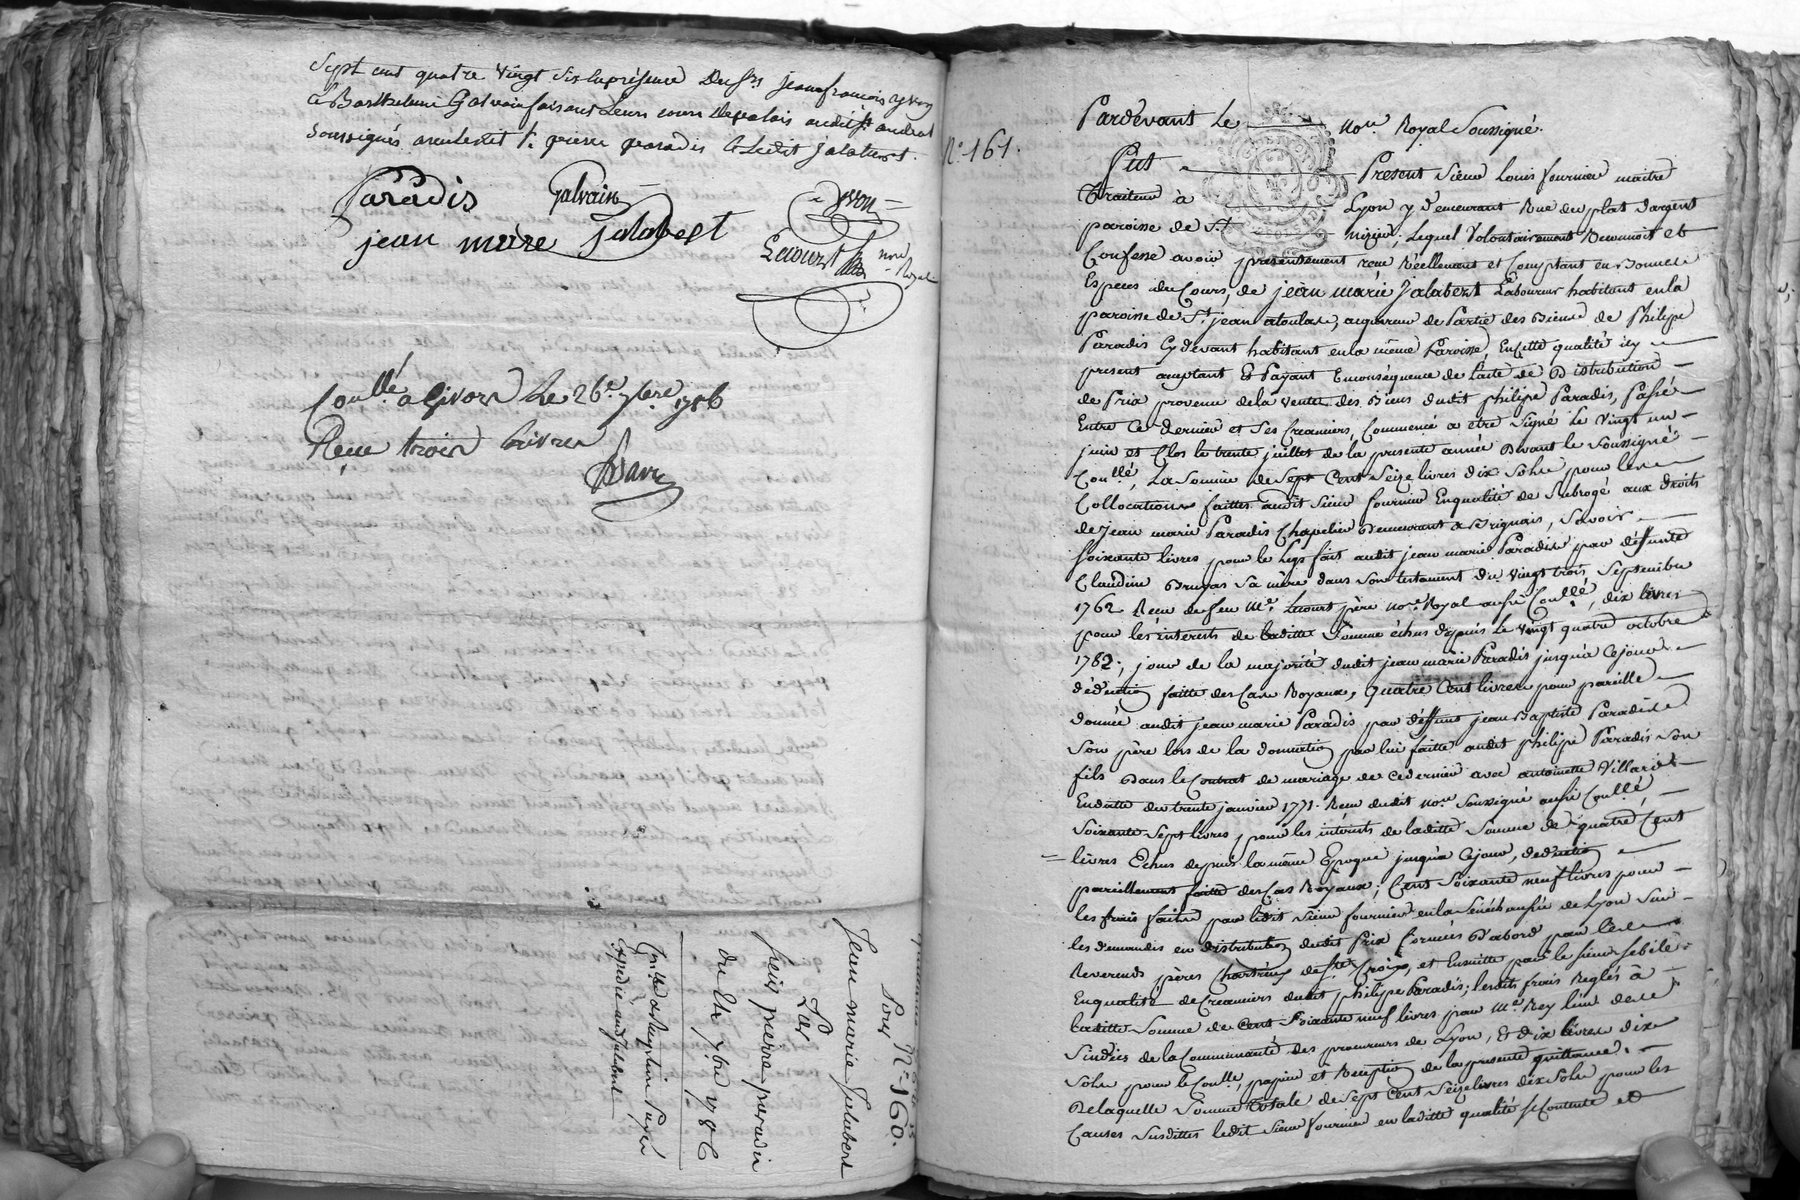 Sept cent quatre vingt six en présence Des Srs jean françois yvon
& Barthelemi Galvain faisant Leur cours Depalais audit
Soussignés avec ledit Sr pierre paradis & Ledit Jalabert.
Paradis Galvain yvon
jean marie jalabert
Lecourt nore Royal
Conllé a Givors Le 26e 7bre 1786
Reçu trois Livres
Sous N° 160.
Jean marie Jalabert
Par
Sieur pierre paradis
du 7bre 1786
Conlle & Reception Payés
Expedié audit Jalabert
N° 161.
Pardevant Le nore Royal Soussigné.
Fut Présent Sieur Louis fournier maitre
Traiteur à Lyon y demeurant Rue du plat dargent
paroisse de St nizier, Lequel Volontairement Reconnoit et
Confesse avoir présentement recu Réellement et Comptant en Bonnes
Especes du Cours, de jean marie Jalabert Laboureur habitant en la
paroisse de St jean atoulas, acquereur de Partie des Biens de Philipe
Paradis Cydevant habitant en la même Paroisse, En cette qualité icy
present acceptant Et Payant En conséquence de L'acte de Distribution
de Prix provenu de la vente des Biens dudit philipe Paradis, Passé
Entre Ce Dernier et Ses Creanciers, Commencé a etre Signé Le Vingt un
juin et Clos le trente juillet de la presente année Devant le Soussigné
Conllé, La Somme de Sept Cent Seize livres dix Sols pour les
Collocations faittes audit Sieur fournier En qualité de Subrogé aux droits
de Jean marie Paradis Chapelier Demeurant a Brignais, Savoir
Soixante livres pour le Legs fait audit jean marie Paradis par deffunte
Claudine Brugas Sa mère dans Son testament du Vingt trois Septembre
1762 Recu de feu Me. Lecourt père nore Royal aussi Conllé, dix livres
pour les interests de laditte Somme échus depuis Le Vingt quatre octobre
1782, jour de la majorité dudit jean marie Paradis jusqu'a Cejour
déduction faitte des Cas Royaux, Quatre Cent livres pour pareille
donnée audit jean marie Paradis par deffunt jean Baptiste Paradis
Son père lors de la donnation par lui faitte audit philipe Paradis Son
fils Dans le Contrat de mariage de ce dernier avec antoinette Villard
En datte du trente janvier 1771. Recu dudit nore Soussigné aussi Conllé
Soixante Sept livres pour les intérêts de laditte Somme de quatre Cent
livres Echus depuis la même Epoque jusqu'a Cejour, déduction
pareillement faitte des Cas Royaux; Cent Soixante neuf livres pour
les frais faits par ledit Sieur fournier en la Sénéchaussée de Lyon Sur
les demandes en distribution dudit Prix formées D'abord par les
Reverends pères Chartreux de Ste Croix, et Ensuitte par le Sieur
En qualité de Creanciers dudit philipe Paradis; lesdits frais Réglés à
laditte Somme de Cent Soixante neuf livres par Me Rey l'un des
Sindics de la Communauté des procureurs de Lyon, & dix livres dix
Sols pour le Conlle, papier et Reception de la presente quittance.
De laquelle Somme totale de Sept Cent Seize livres dix Sols pour les
Causes Susdittes ledit Sieur fournier en laditte qualité se Contente et